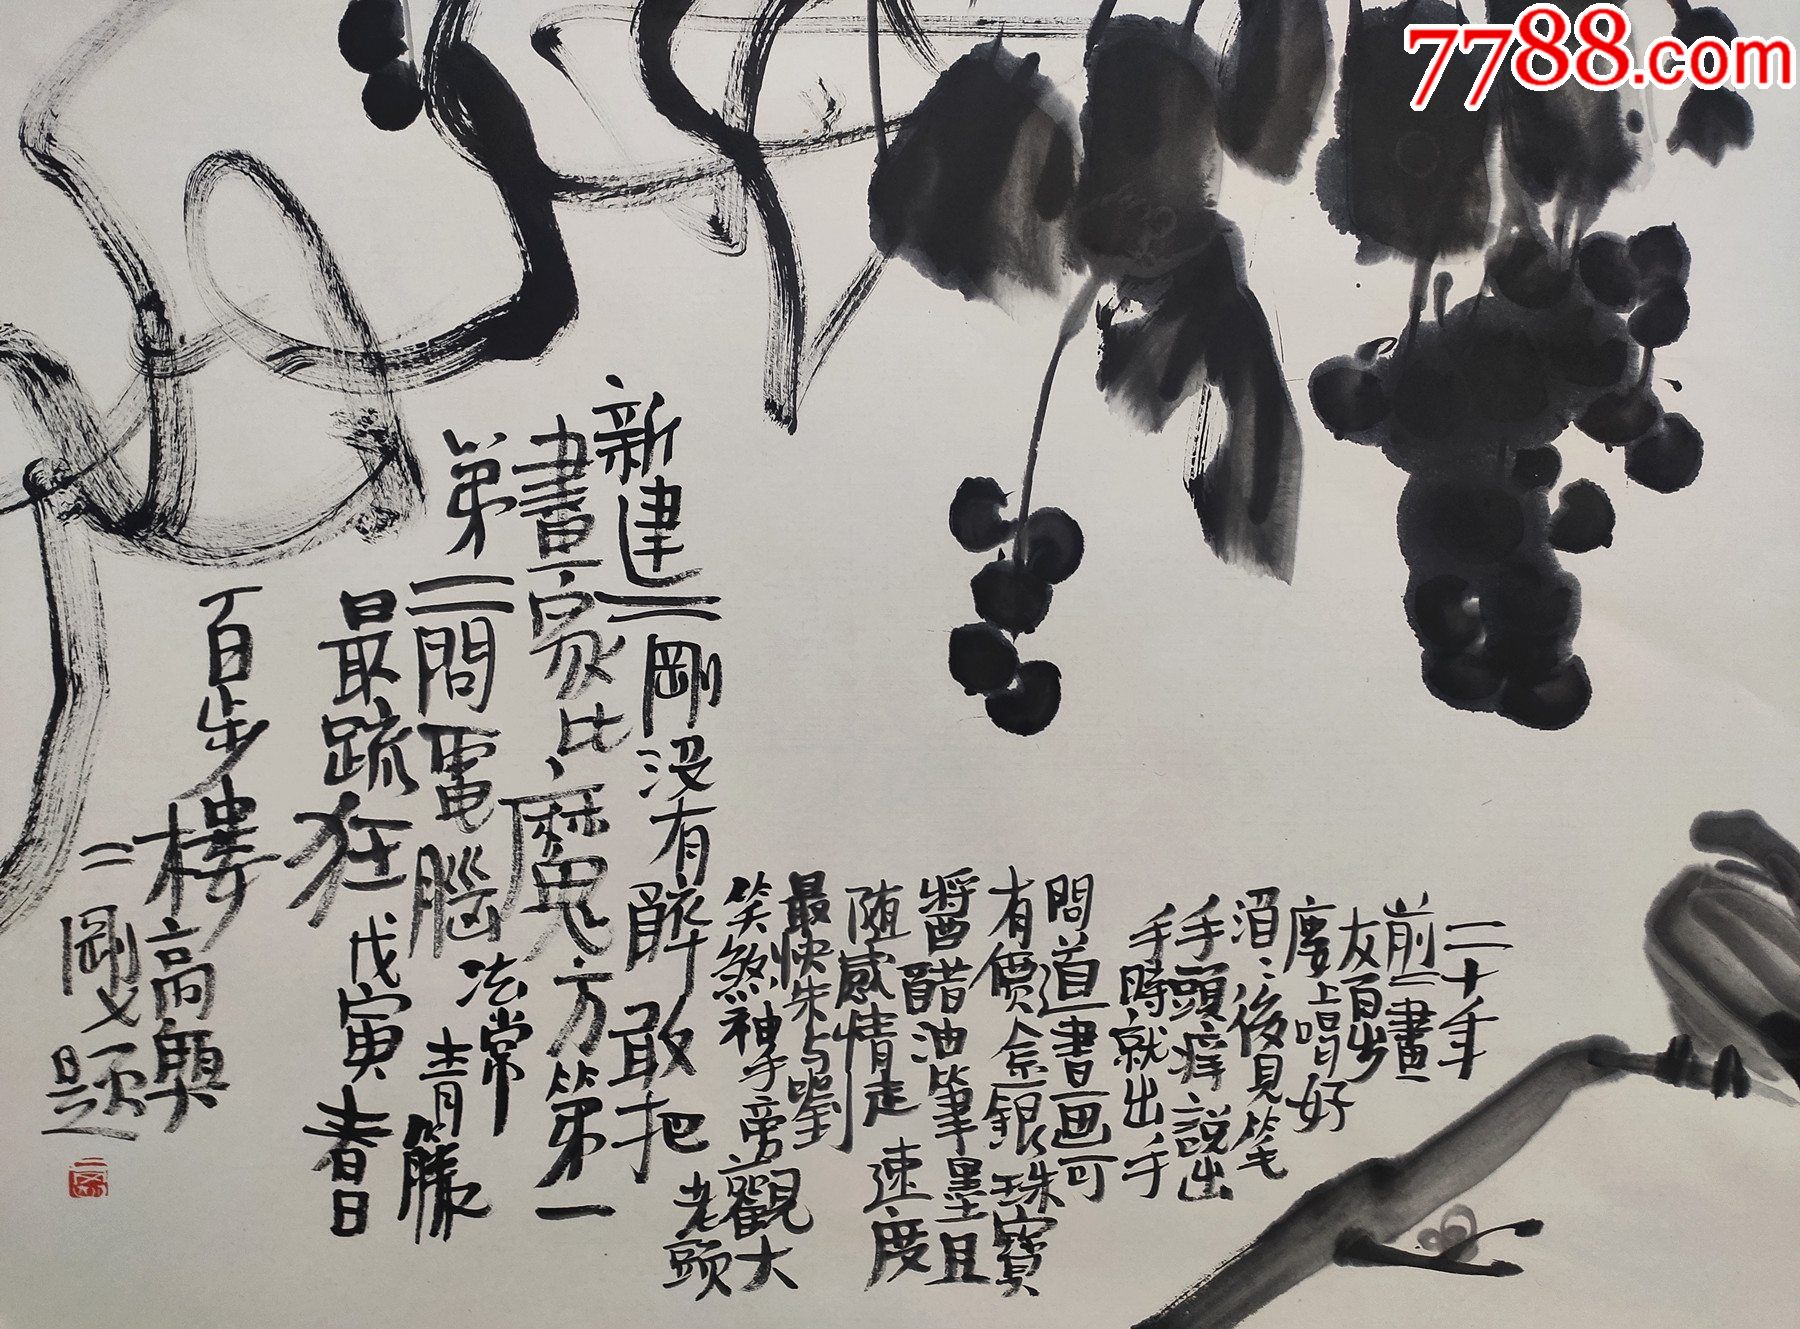 7788.com
二十年
前二畫
友百步
樓上唱好
後見笔
手頭痒説出
手時就出手
問道書画可
有價金銀珠寶
醬醋油筆墨且
随感情走速度
最快朱与劉
笑煞神手旁觀大
老頭
新建二剛没有醉敢把
畫家比魔方第一
第二問電腦法常
青籐
最疏狂戊寅春日
百步樓高興
二剛又題